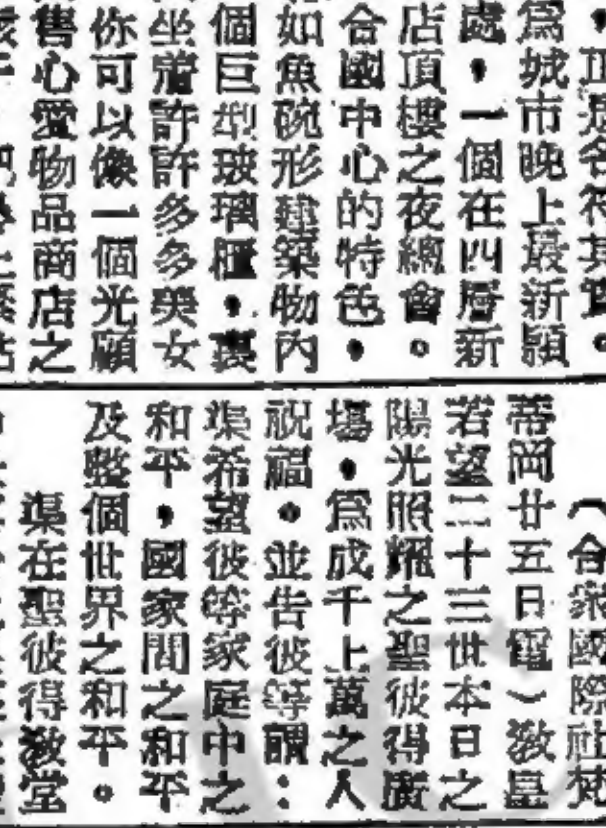 ，正是名符其實。
為城市晚上最新穎
處，一個在四層新
店頂樓之夜總會。
合國中心的特色，
如魚碗形建築物內
個巨型玻璃櫃，裏
坐着許許多多美女
你可以像一個光顧
售心愛物品商店之
（合家國際社梵
蒂岡廿五日電）教皇
若望二十三世本日之
陽光照耀之聖彼得廣
場，為成千上萬之人
祝福。並告彼等謂：
渠希望彼等家庭中之
和平，國家間之和平
及整個世界之和平。
渠在聖彼得教堂